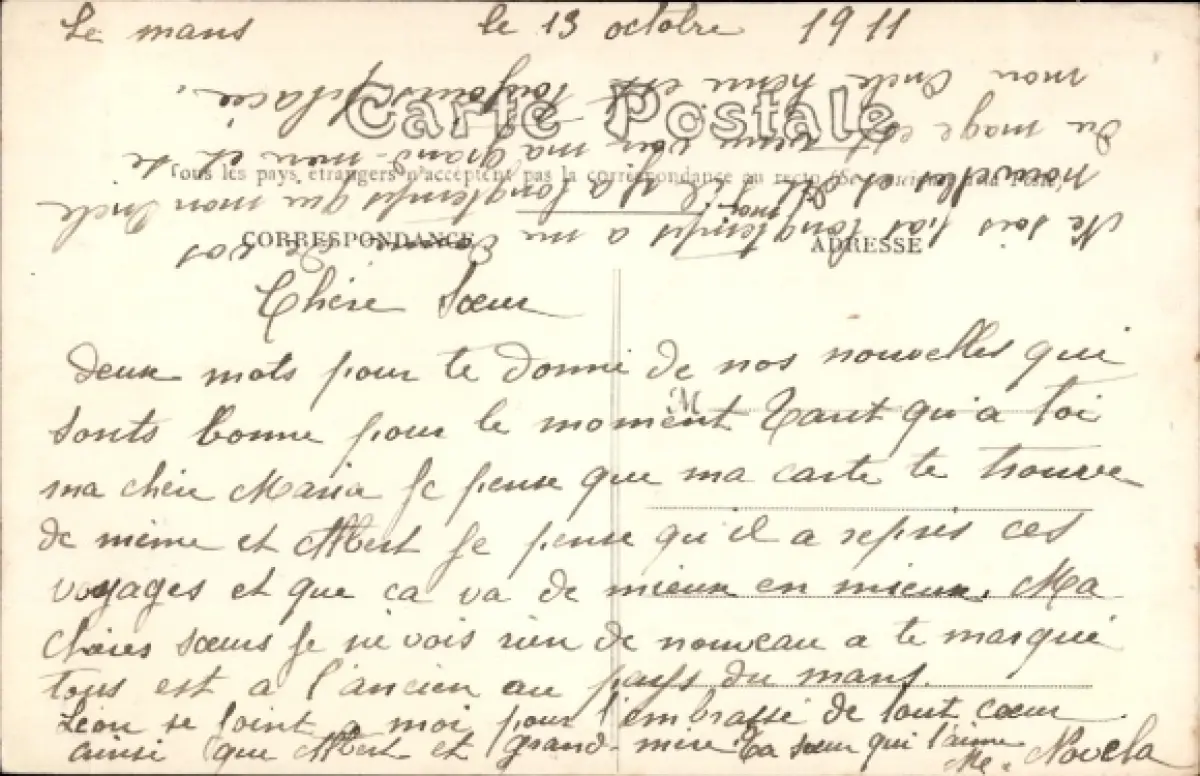 Le mans le 13 octobre 1911
Carte Postale
Tous les pays étrangers n'acceptent pas la correspondance au recto (Se renseigner à la Poste)
CORRESPONDANCE ADRESSE
Chère Sœur
deux mots pour te donné de nos nouvelles qui
M
sonts bonne pour le moment Tant qu'a toi
ma chère Maria Je pense que ma carte te trouve
de même et Albert Je pense qu'il a repris ces
voyages et que ça va de mieux en mieux. Ma
chères sœurs Je ne vois rien de nouveau a te marqué
tous est a l'ancien au pays du mans.
Léon se loint a moi pour l'embrassé de tout cœur
ainsi que Albert et grand-mère Ta sœur qui l'aime
Me. Novela
Ne sois pas longtemps a me de vos
nouvelles et dit moi s'il y a longtemps que mon Oncle
du mage est venu voir ma grand-mère et
mon Oncle henri est toujours placé.